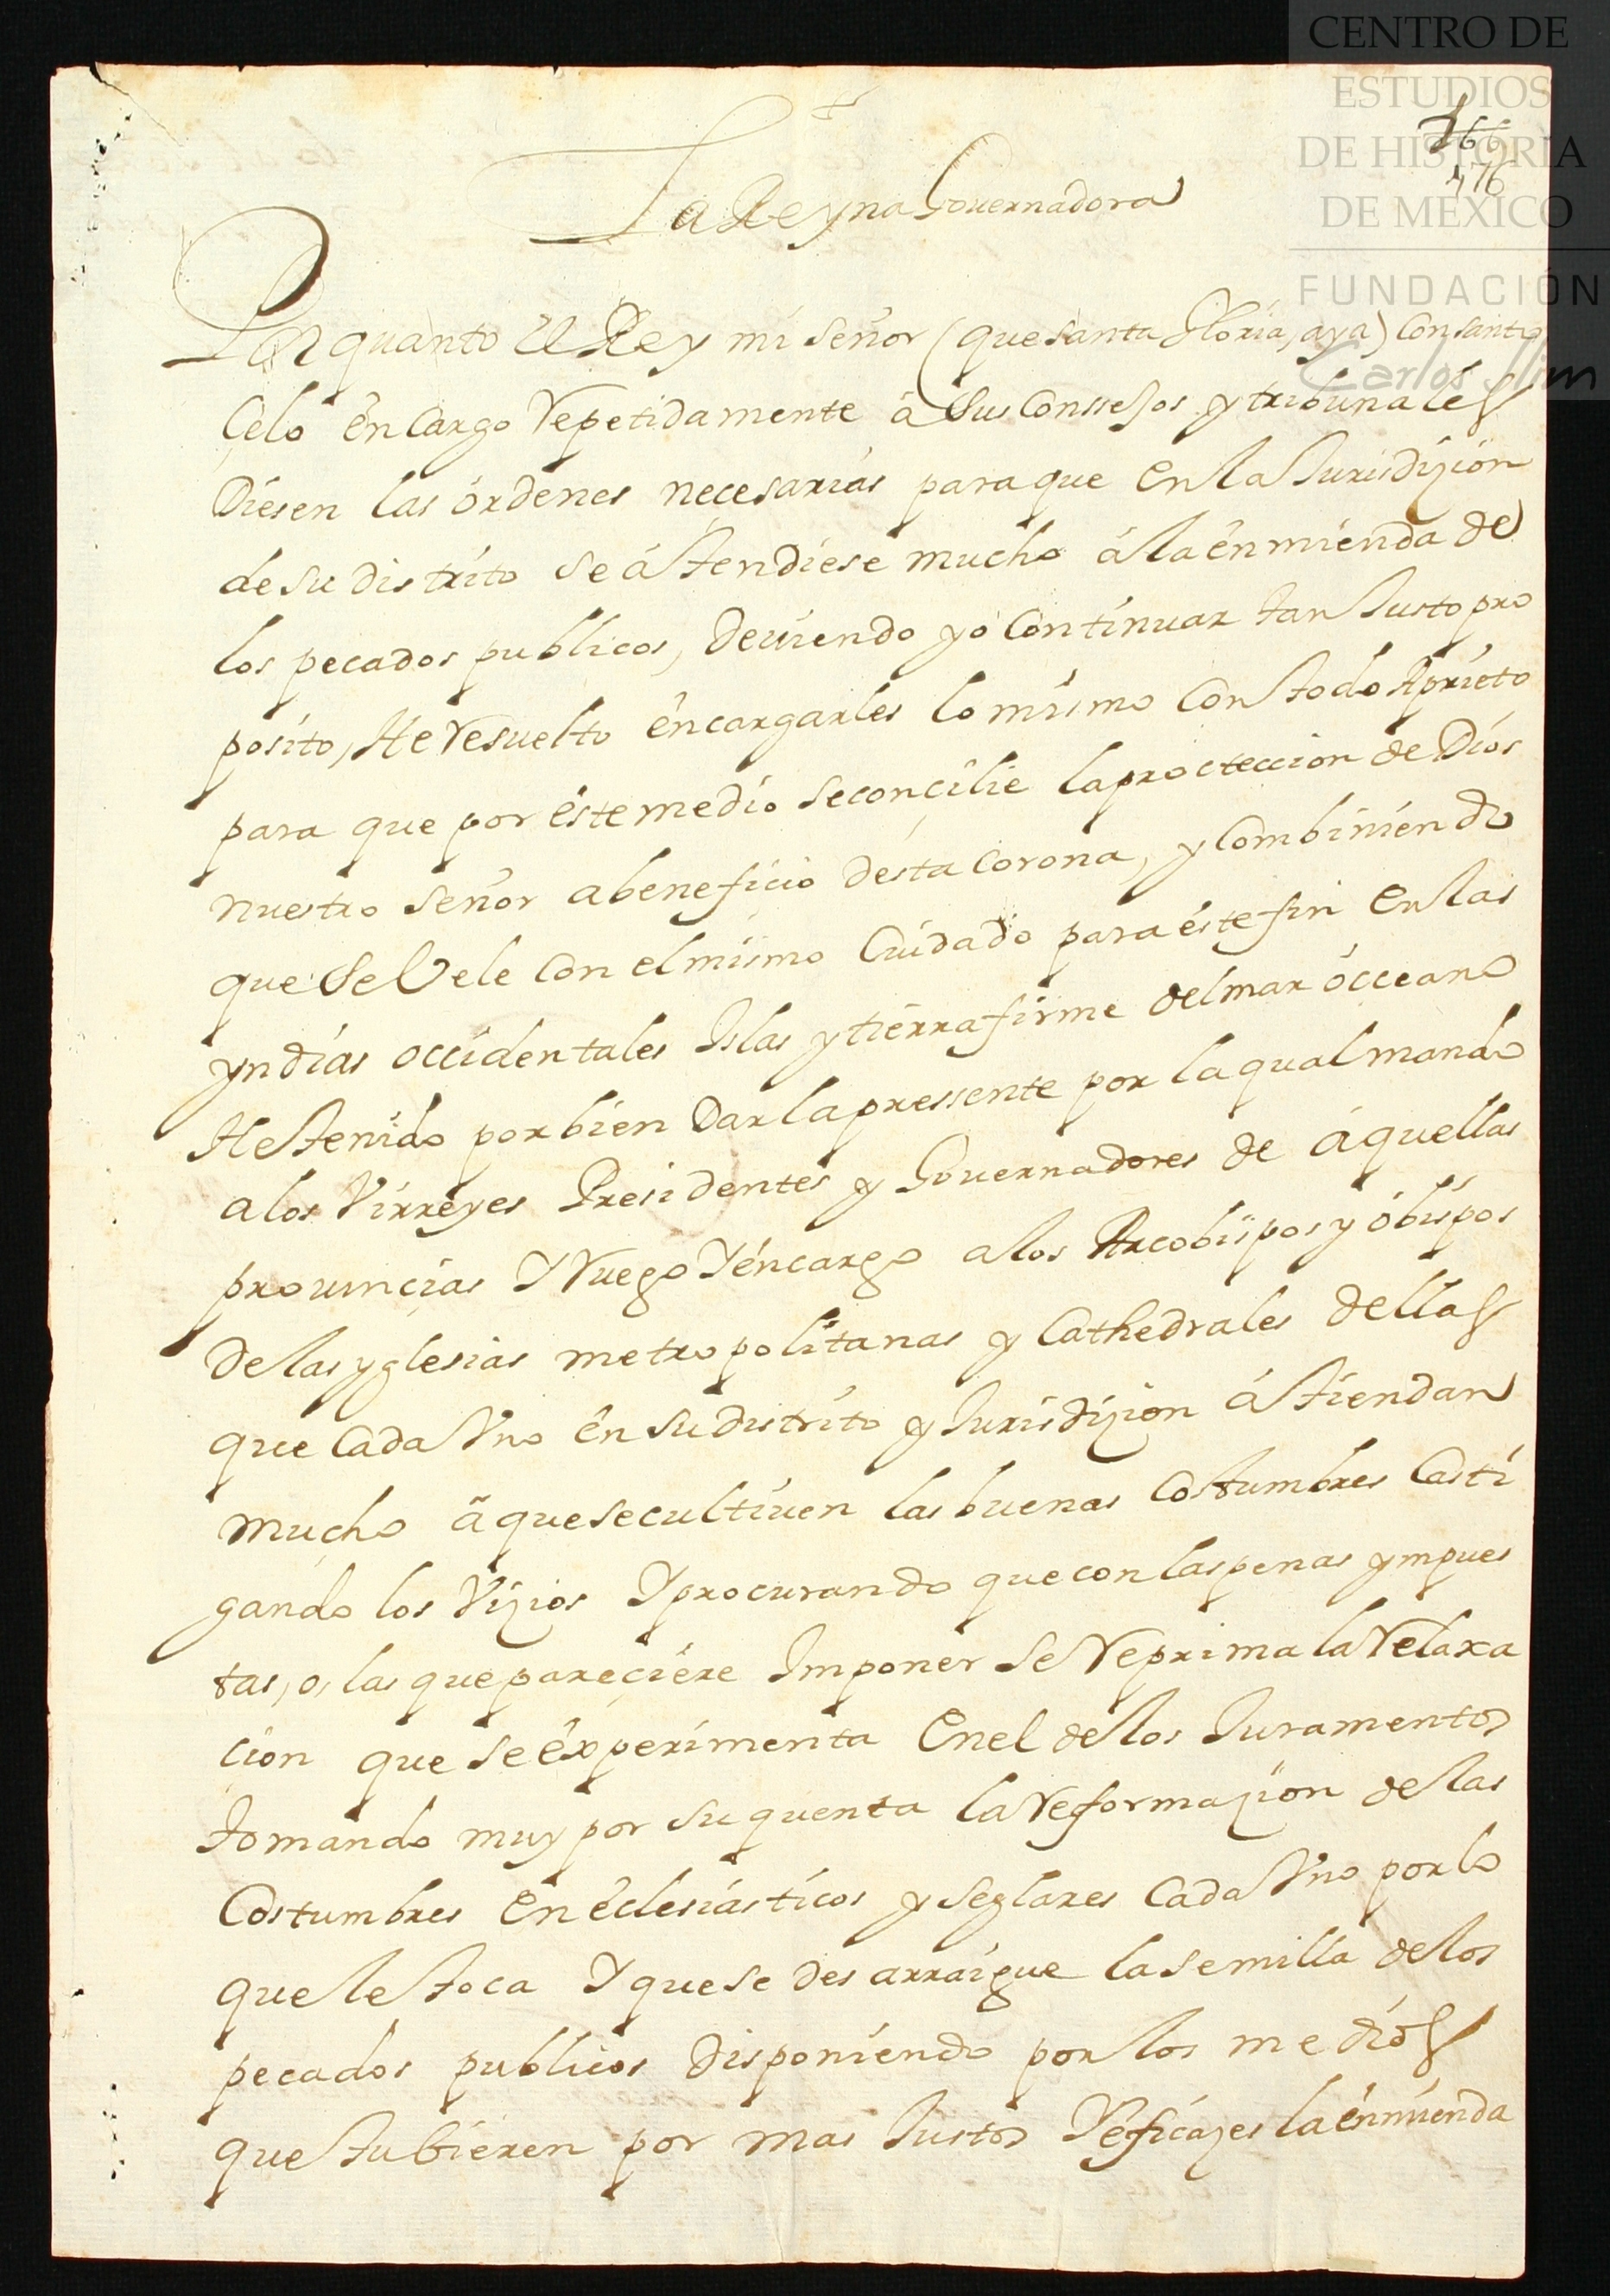 CENTRO DE
ESTUDIOS
DE HISTORIA
DE MEXICO
FUNDACIÓN
Carlos Slim
166
476
La Reyna Gouernadora
Por quanto El Rey mi señor (que santa Gloria, aya) con santo
Celo encargo Repetidamente á sus Conssejos y tribunales
Diesen las ordenes necesarias para que en la Jurisdizion
de su distrito se áttendiese mucho á la enmienda de
los pecados publicos, Deuiendo yo Continuar tan Justo pro
posito, He Resuelto encargarles lo mismo con todo Aprieto
para que por este medio se concilie la procteccion de Dios
nuestro señor a beneficio desta Corona, y Combiniendo
que se Vele con el mismo Cuidado para este fin en las
yndias occidentales Islas y tierra firme del mar occeano
He tenido por bien Dar la pressente por la qual mando
a los Virreyes Presidentes y Gouernadores de aquellas
prouincias Y Ruego Y encargo a los Arcobispos y óbispos
De las yglesias metropolitanas y Cathedrales dellas
que Cada Vno en su distrito y Jurisdizion átiendan
mucho á que se cultiuen las buenas Costumbres Casti
gando los Vizios Y procurando que con las penas ympues
tas, o, las que pareciere Imponer se Reprima la Relaxa
cion que se experimenta En el de los Juramentos
tomando muy por su quenta la Reformazion de las
Costumbres en eclesiasticos y seglares Cada Vno por lo
que le toca Y que se des arraigue la semilla de los
pecados publicos Disponiendo por los medios
que tubieren por mas Justos Y eficazes la enmienda